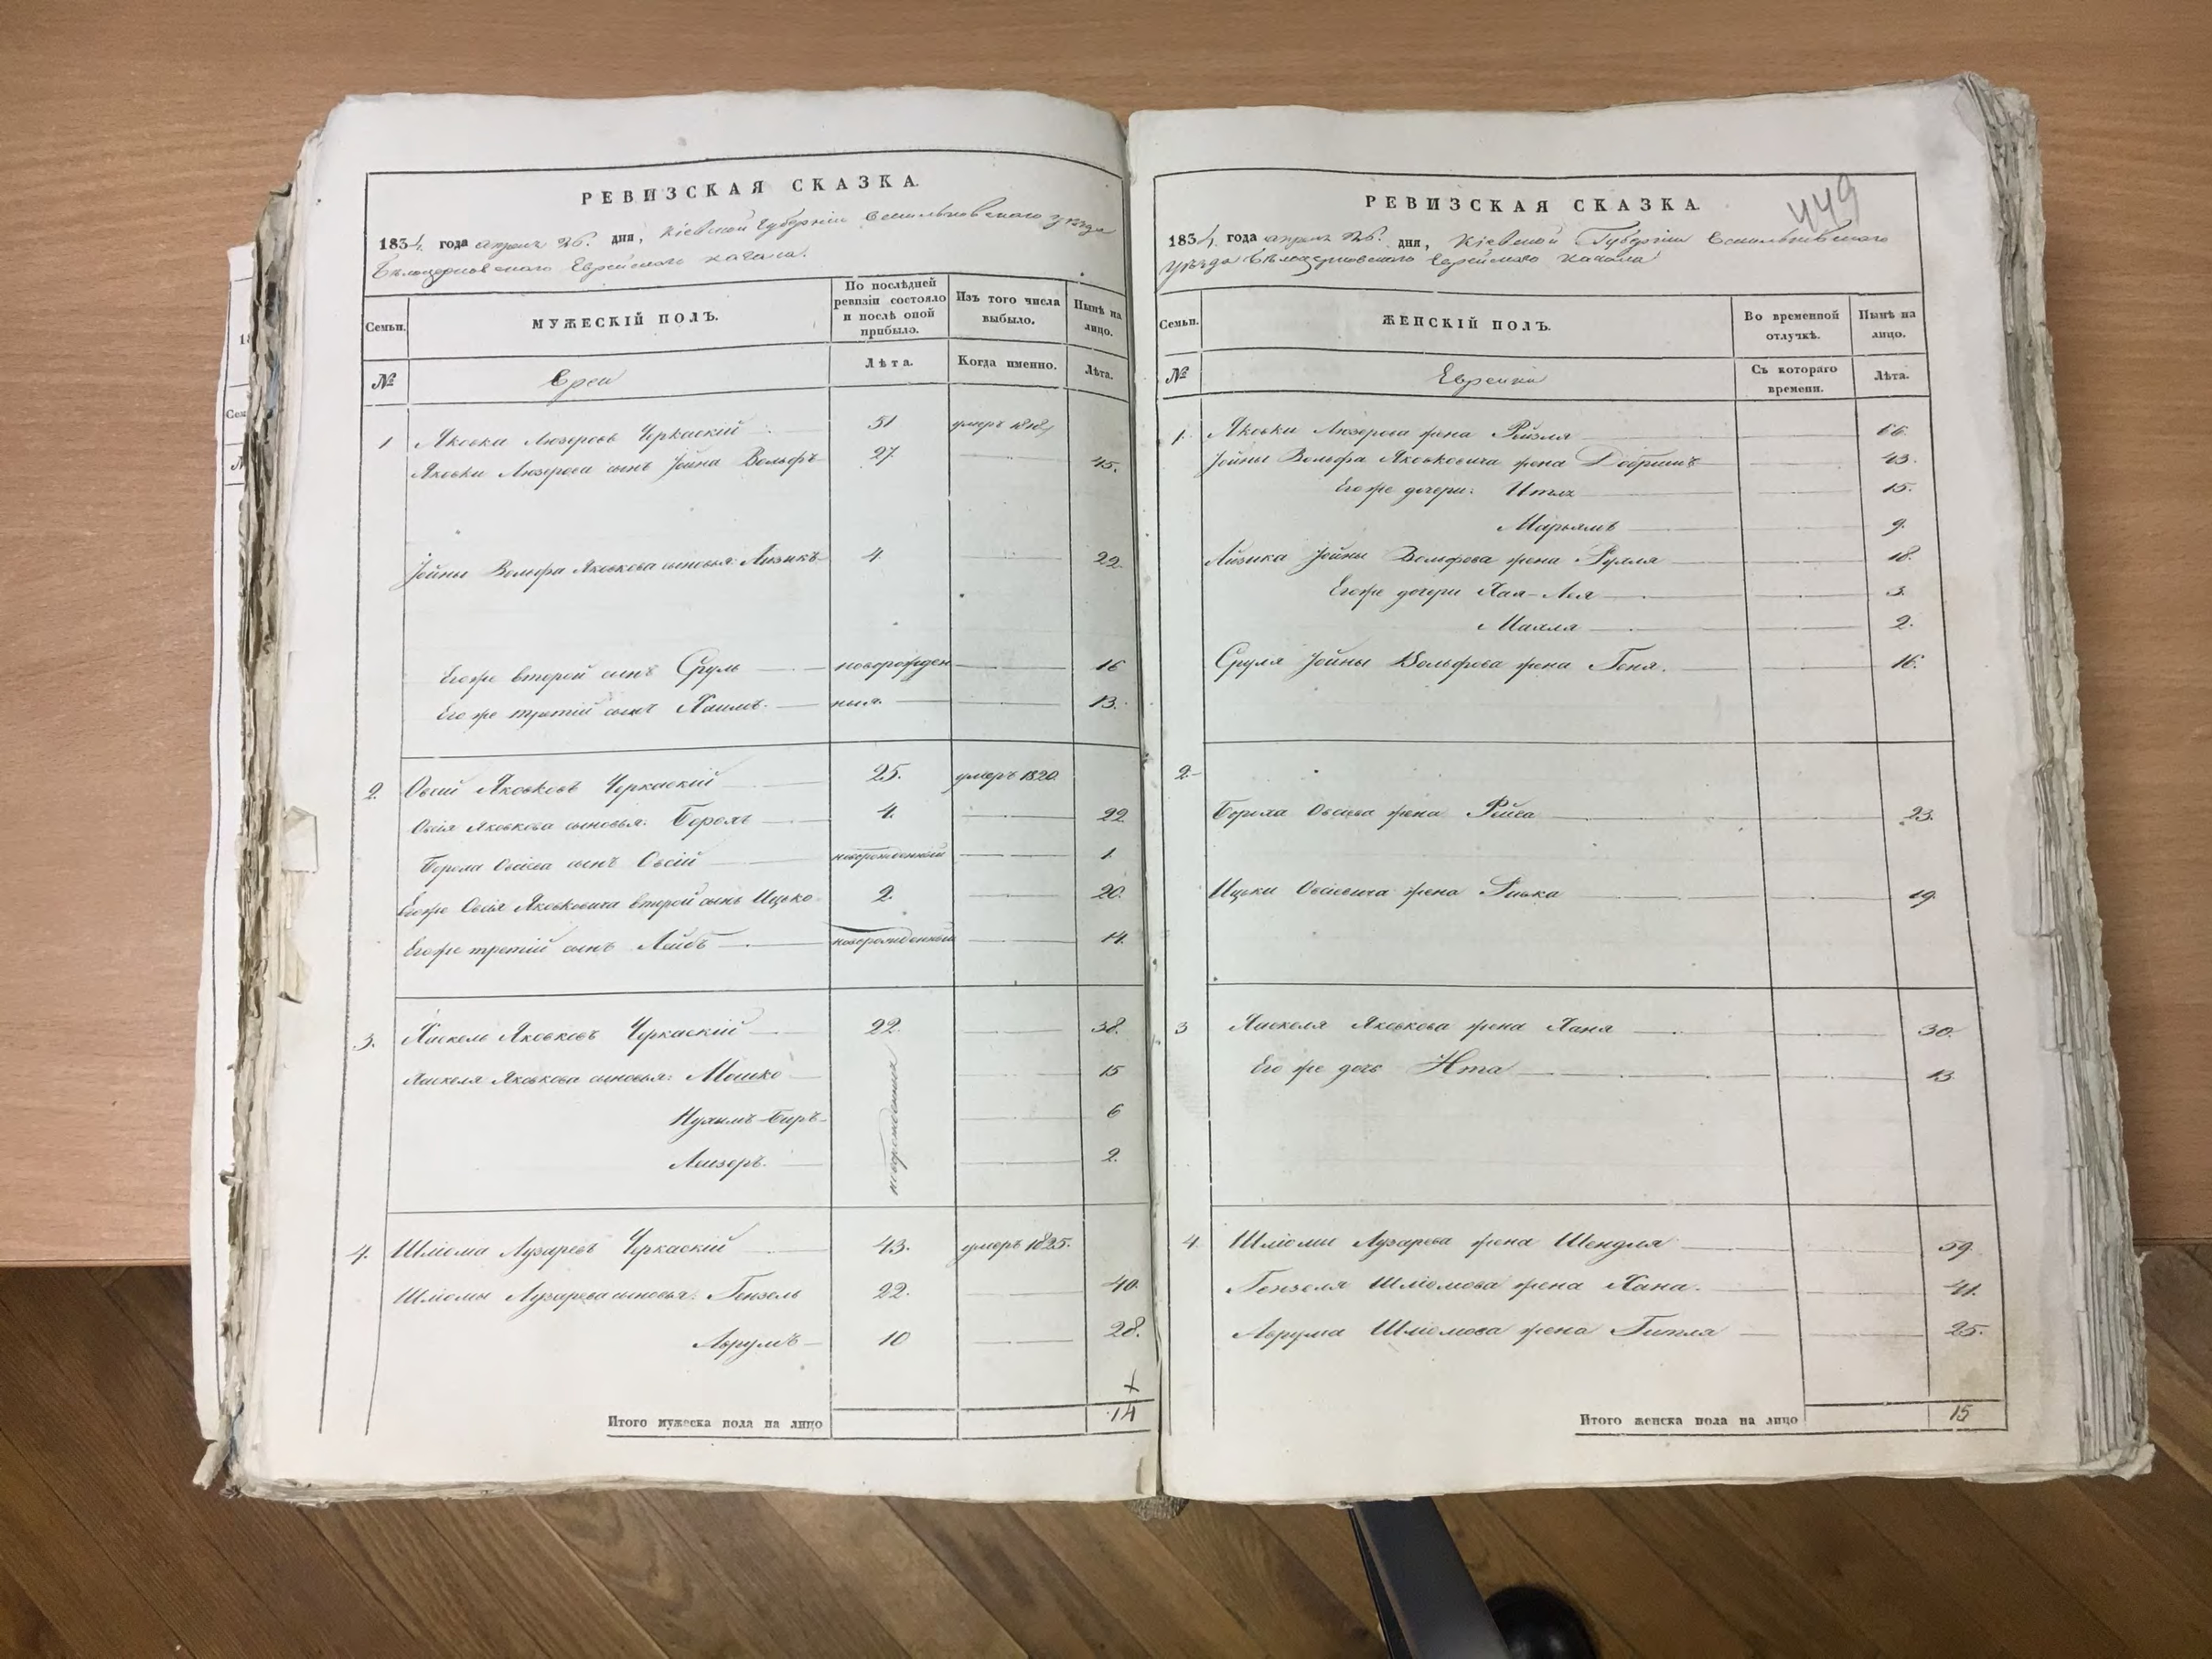 РЕВИЗСКАЯ СКАЗКА.
1834 года апреля 26. дня, Кіевской Губерніи Васильковского уезда
Бѣлоцерковского Еврейского кагала.
Семьи.
МУЖЕСКІЙ ПОЛЪ.
По послѣдней ревизіи состояло и послѣ оной прибыло.
Изъ того числа выбыло.
Нынѣ на лицо.
№
Евреи
Лѣта.
Когда именно.
Лѣта.
1 Яковки Люзеровъ Черкаскій 51 умеръ 1818
Яковки Люзерова сынъ Іойна Вольфъ 27. 45.
Іойны Вольфа Яковкова сыновья: Айзикъ 4 22.
Его же второй сынъ Сруль новорожден 16
Его же третій сынъ Хаимъ. ныя. 13.
2 Овсій Яковковъ Черкаскій 25. умеръ 1820.
Овсія Яковкова сыновья: Борохъ 4. 22
Бороха Овсіева сынъ Овсій новорожденный 1.
Его же Овсія Яковковича второй сынъ Ицько 2. 20.
Его же третій сынъ Лейбъ новорожденный 14.
3. Хаскель Яковковъ Черкаскій 22. 38.
Хаскеля Яковкова сыновья: Мошко новорожденныя 15
Нухымъ-Биръ 6
Лейзеръ. 2.
4. Шліома Лузаревъ Черкаскій 43. умеръ 1825.
Шліомы Лузарева сыновья: Гензель 22. 40.
Аврумъ 10 28.
Итого мужеска пола на лицо 14
РЕВИЗСКАЯ СКАЗКА.
449
1834 года апреля 26. дня, Кіевской Губерніи Васильковского
уезда Бѣлоцерковского Еврейского кагала
Семьи.
ЖЕНСКІЙ ПОЛЪ.
Во временной отлучкѣ.
Нынѣ на лицо.
№
Еврейки
Съ котораго времени.
Лѣта.
1. Яковки Люзерова жена Рейзля 66.
Іойны Вольфа Яковковича жена Добришъ 43.
Его же дочери: Итля 15.
Марьямъ 9.
Айзика Іойны Вольфова жена Рухля 18.
Его же дочери Хая-Лея 3.
Малля 2.
Сруля Іойны Вольфова жена Геня. 16.
2.
Бороха Овсіева жена Рейса 23.
Ицьки Овсіевича жена Ривка 19.
3 Хаскеля Яковкова жена Ханя 30.
Его же дочь Ита 13
4. Шліомы Лузарева жена Шендля 59.
Гензеля Шліомова жена Хана. 41.
Аврума Шліомова жена Гитля 25.
Итого женска пола на лицо 15